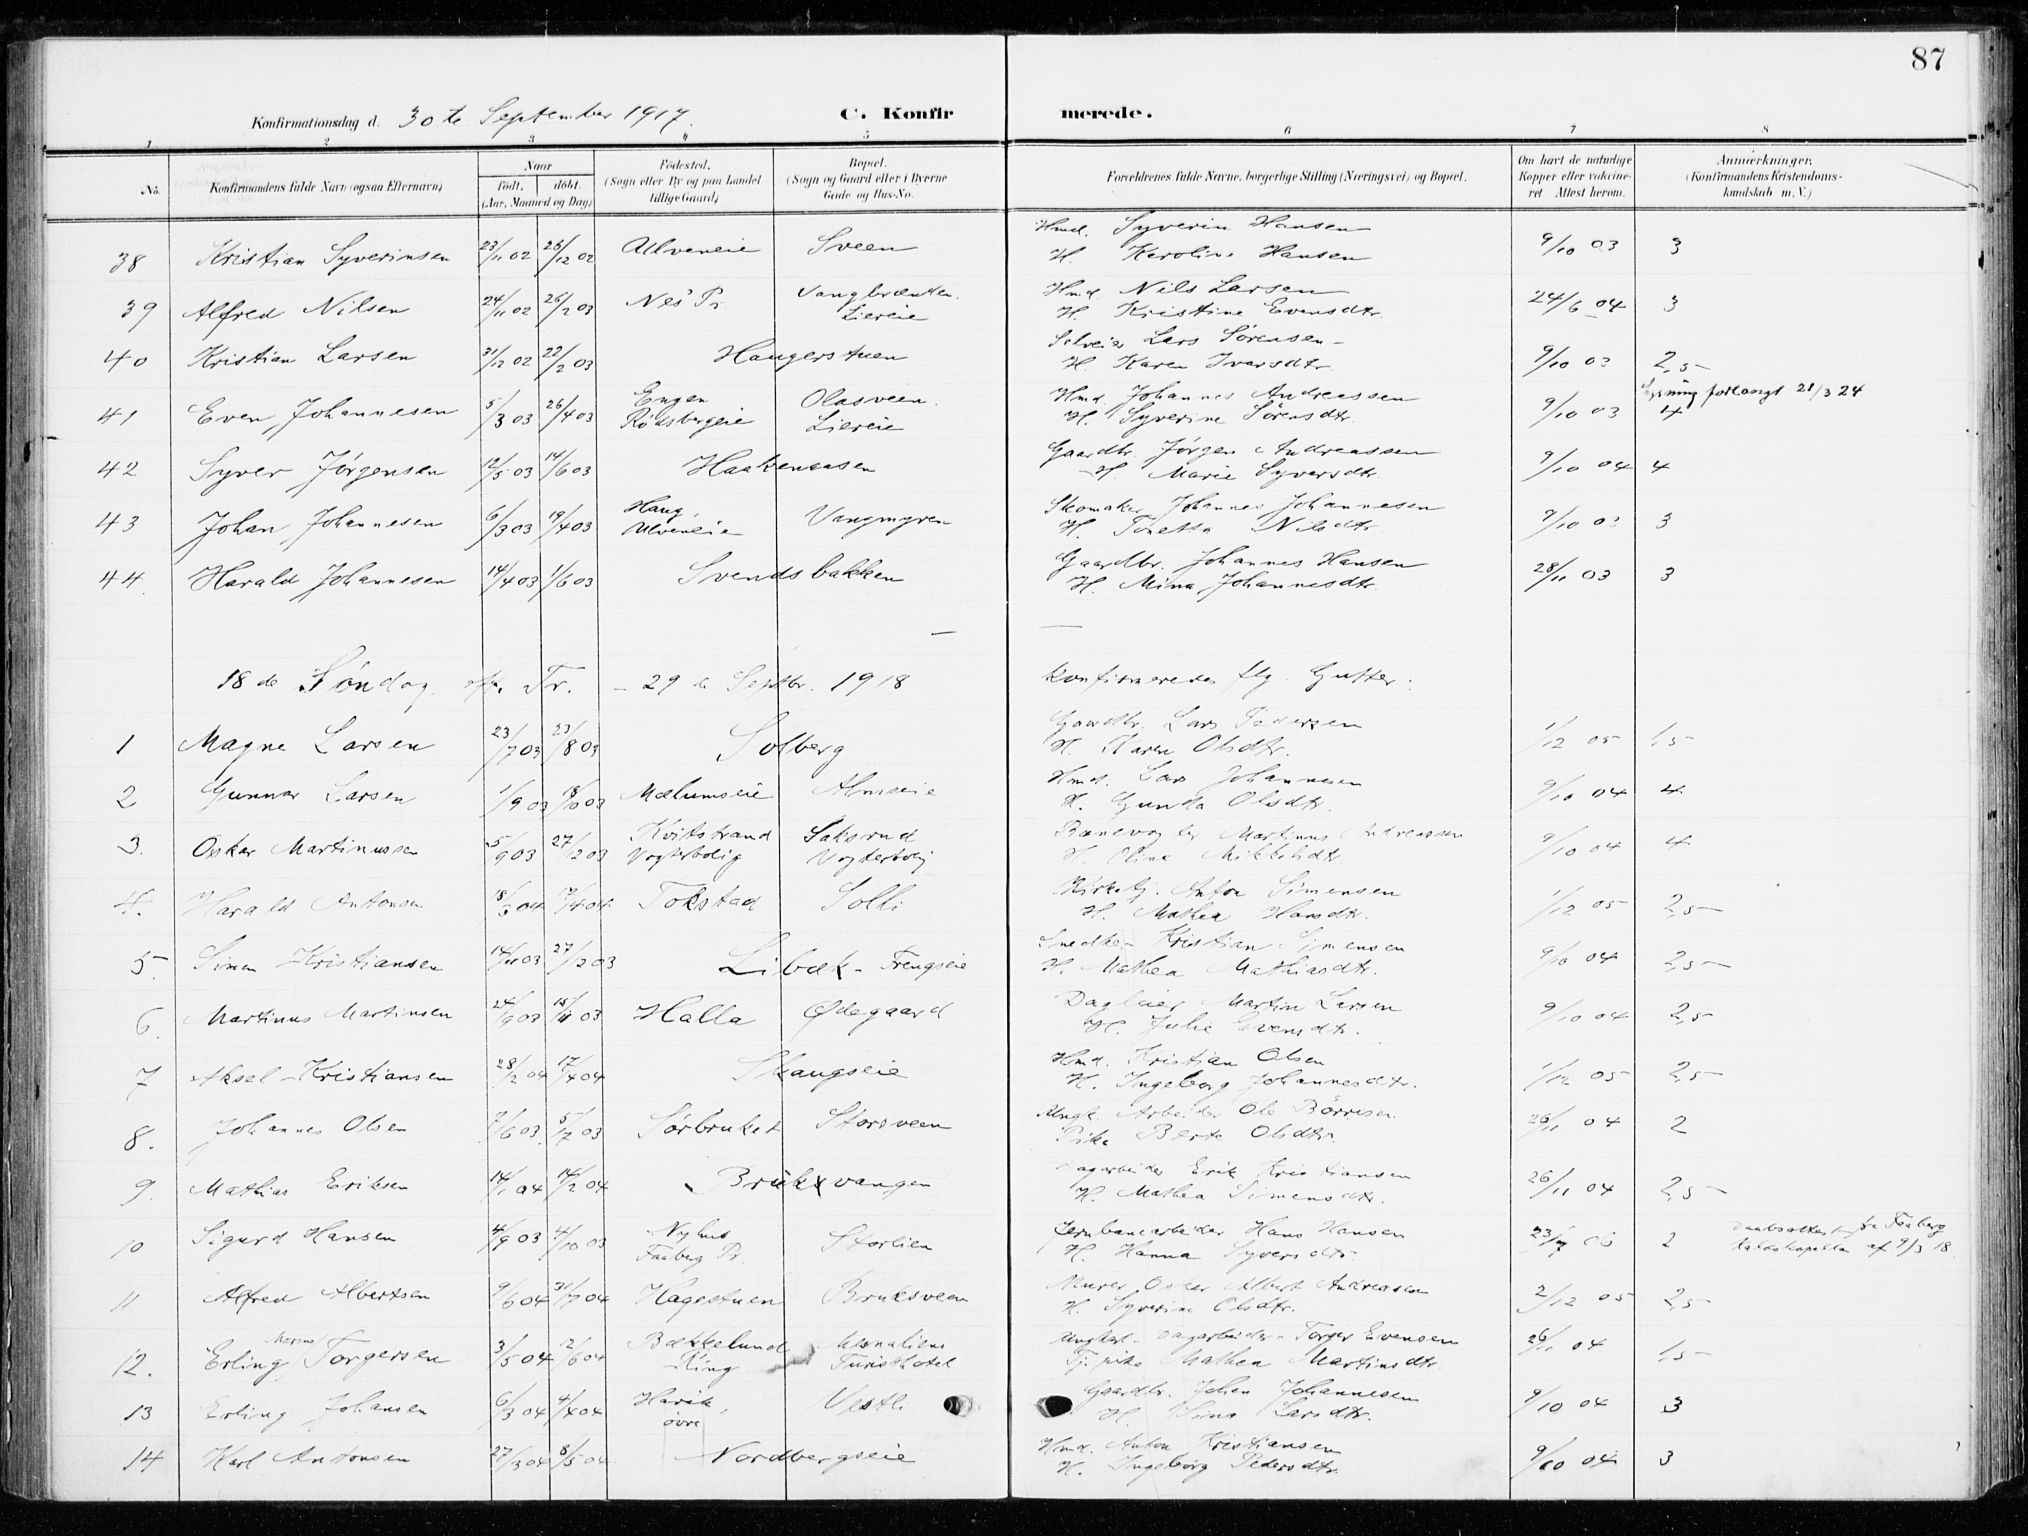 87
Konfirmationsdag d. 30te September 1917. C. Konfirmerede.
1 2 3 4 5 6 7 8
No. Konfirmandens fulde Navn (ogsaa Efternavn) Naar født. døbt. (Aar, Maaned og Dag) Fødested. (Sogn eller By og paa Landet tillige Gaard) Bopæl. (Sogn og Gaard eller i Byerne Gade og Hus-No. Forældrenes fulde Navne, borgerlige Stilling (Næringsvei) og Bopæl. Om havt de naturlige Kopper eller vaccineret. Attest herom. Anmærkninger. (Konfirmandens Kristendomskundskab m. V.)
38 Kristian Syverinsen 23/11 02 26/12 02 Ulveneie Sveen Hmd. Syverin Hansen 9/10 03 3
H. Karoline Hansen
39 Alfred Nilsen 24/11 02 26/2 03 Nes Pr. Vangbrænten Hmd. Nils Larsen 24/6 04 3
Liereie H. Kristine Evensdtr.
40 Kristian Larsen 31/12 02 22/2 03 Haugerstuen Selveier Lars Sørensen 9/10 03 2,5
H. Karen Ivarsdtr.
41 Even Johannesen 5/3 03 26/4 03 Engen Olasveen Hmd. Johannes Andreassen 9/10 03 4 Lysning forlangt 21/3 24
Rødsbergeie Liereie H. Syverine Sørensdtr.
42 Syver Jørgensen 12/5 03 14/6 03 Haakenaasen Gaardbr. Jørgen Andreassen 9/10 04 4
H. Marie Syversdtr.
43 Johan Johannesen 6/3 03 19/4 03 Haug, Vangmyren Skomaker Johannes Johannesen 9/10 03 3
Ulveneie H. Toretta Nilsdtr.
44. Harald Johannesen 14/4 03 1/6 03 Svendsbakken Gaardbr. Johannes Hansen 28/11 03 3
H. Mina Johannesdtr.
18de Søndag eft. Tr. – 29de Septbr. 1918 konfirmeredes flg. Gutter:
1 Magne Larsen 23/7 03 23/8 03 Solberg Gaardbr. Lars Pedersen 1/12 05 1,5
H. Karen Olsdtr.
2 Gunnar Larsen 1/9 03 18/10 03 Mælumseie Almseie Hmd. Lars Johannesen 9/10 04 4
H. Gunda Olsdtr.
3. Oskar Martinussen 5/9 03 27/12 03 Kvitstrand Saksrud Banevogter Martinus Andreassen 9/10 04 4
Vogterbolig Vogterbolig H. Oline Mikkelsdtr.
4. Harald Antonsen 18/3 04 17/4 04 Tokstad Solli Kirketj. Anton Simensen 1/12 05 2,5
H. Mathea Hansdtr.
5. Simen Kristiansen 14/11 03 27/12 03 Libæk – Frengseie Snedker Kristian Simensen 9/10 04 2,5
H. Mathea Mathiasdtr.
6. Martinus Martinsen 24/9 03 15/11 03 Halla Ødegaard Dagleier Martin Larsen 9/10 04 2,5
H. Julie Evensdtr.
7 Aksel Kristiansen 28/2 04 17/4 04 Skaugseie Hmd. Kristian Olsen 1/12 05 2,5
H. Ingeborg Johannesdtr.
8. Johannes Olsen 7/6 03 5/7 03 Sørbruket Storsveen Ungk. Arbeider Ole Børresen 26/11 04 2
Pike Berte Olsdtr.
9. Mathias Eriksen 14/1 04 14/2 04 Bruksvangen Dagarbeider Erik Kristiansen 26/11 04 2,5
H. Mathea Simensdtr.
10 Sigurd Hansen 4/9 03 4/10 03 Nyhus Storlien Jernbanearbeider Hans Hansen 23/7 06 2 Daabsattest fra Faaberg
Faaberg Pr. H. Hanna Syversdtr. af 9/3 18
11 Alfred Albertsen 9/6 04 31/7 04 Hagestuen Bruksveen Murer Oskar Albert Andreassen 2/12 05 2,5
H. Syverine Olsdtr.
12. Erling Marius Torgersen 3/5 04 12/6 04 Bækkelund Mesnaliens Ungkarl Dagarbeider Torger Evensen 26/11 04 1,5
Ring Turisthotel Tj. pike Mathea Martinsdtr.
13 Erling Johansen 6/3 04 4/4 04 Havik, Vestli Gaardbr. Johan Johannesen 9/10 04 3
øvre H. Larsdtr.
14 Karl Antonsen 27/3 04 8/5 04 Nordbergseie Hmd. Anton Kristiansen 9/10 04 3
H. Ingeborg Pedersdtr.